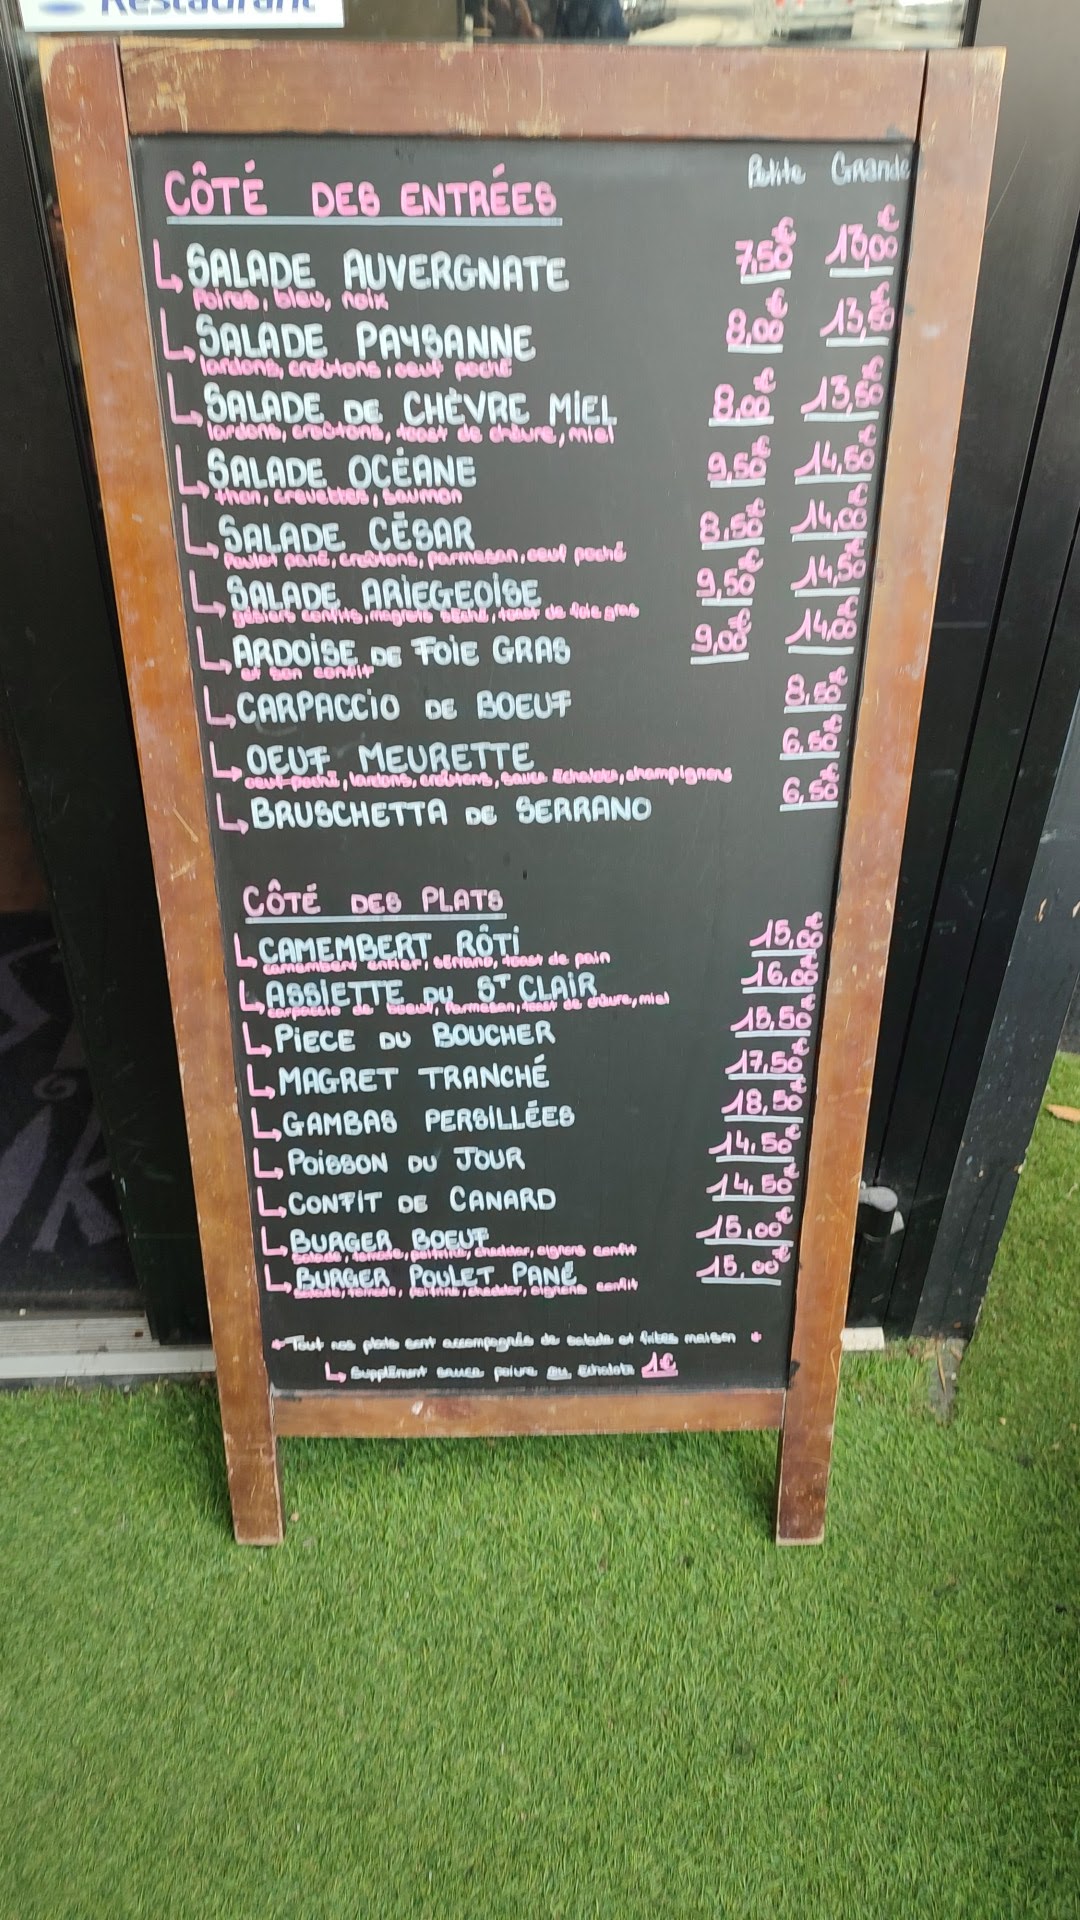 Restaurant
Petite Grande
CÔTÉ DES ENTRÉES
SALADE AUVERGNATE 7,50€ 13,00€
Poires, bleu, noix
SALADE PAYSANNE 8,00€ 13,50€
lardons, croûtons, oeuf poché
SALADE DE CHÈVRE MIEL 8,00€ 13,50€
lardons, croûtons, toast de chèvre, miel
SALADE OCÉANE 9,50€ 14,50€
thon, crevettes, saumon
SALADE CÉSAR 8,50€ 14,00€
Poulet pané, croûtons, parmesan, oeuf poché
SALADE ARIEGEOISE 9,50€ 14,50€
gésiers confits, magrets séché, toast de foie gras
ARDOISE DE FOIE GRAS 9,00€ 14,00€
et son confit
CARPACCIO DE BOEUF 8,50€
OEUF MEURETTE 6,50€
oeuf poché, lardons, croûtons, sauce échalote, champignons
BRUSCHETTA DE SERRANO 6,50€
CÔTÉ DES PLATS
CAMEMBERT RÔTI 15,00€
camembert entier, sérrano, toast de pain
ASSIETTE DU ST CLAIR 16,00€
carpaccio de boeuf, Parmesan, toast de chèvre, miel
PIECE DU BOUCHER 15,50€
MAGRET TRANCHÉ 17,50€
GAMBAS PERSILLÉES 18,50€
POISSON DU JOUR 14,50€
CONFIT DE CANARD 14,50€
BURGER BOEUF 15,00€
Salade, tomate, poitrine, cheddar, oignons confit
BURGER POULET PANÉ 15,00€
Salade, tomate, poitrine, cheddar, oignons confit
* Tout nos plats sont accompagnés de salade et frites maison *
Supplément sauce poivre ou échalote 1€